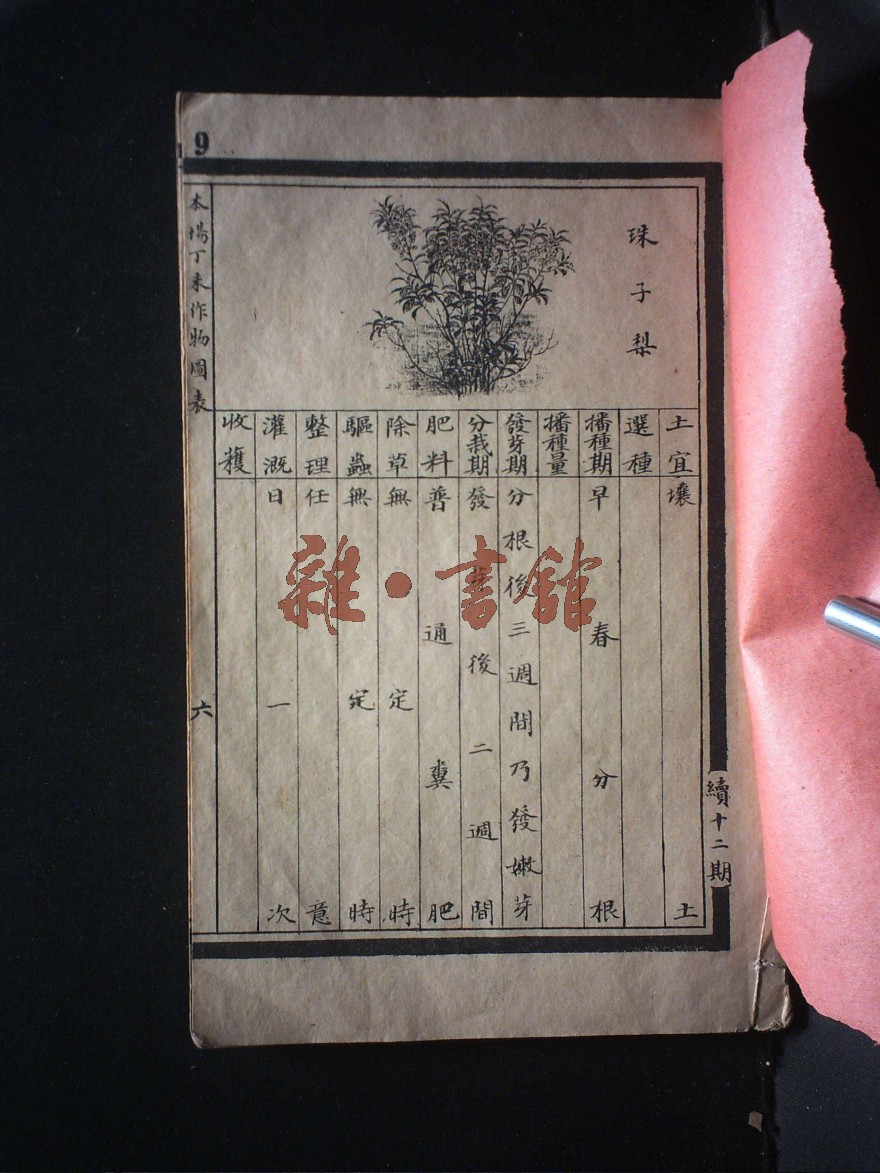 9
珠子梨
土宜 壤土
選種
播種期 早春分根
播種量
發芽期 分根後三週間乃發嫩芽
分栽期 發芽後二週間
肥料 普通糞肥
除草 無定時
驅蟲 無定時
整理 任意
灌溉 日一次
收穫
本場丁未作物圖表
六
續十二期
雜·書館